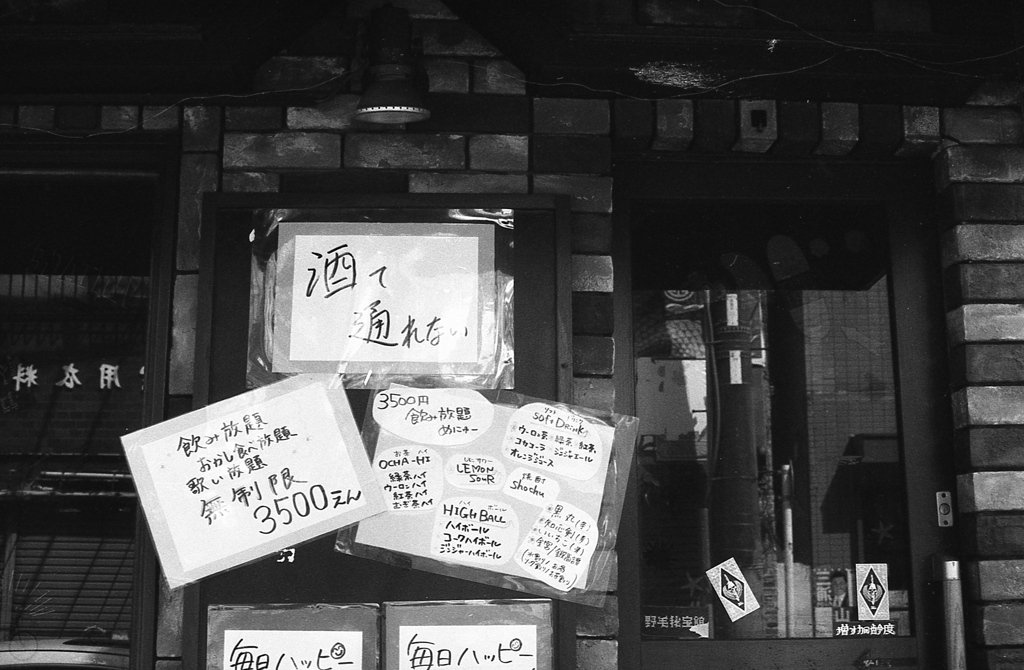 酒て
通れない
飲み放題
おかし食べ放題
歌い放題
無制限
3500えん
3500円
飲み放題
めにゅー
お茶ハイ
OCHA-HI
緑茶ハイ
ウーロンハイ
紅茶ハイ
むぎ茶ハイ
レモンサワー
LEMON
SOUR
ハイ ボール
HIGH BALL
ハイボール
コークハイボール
ジンジャーハイボール
ソフト ドリンク
SOFT DRINK
ウーロン茶 緑茶 紅茶
コカコーラ ジンジャエール
オレンジジュース
焼酎
Shochu
黒丸(芋)
毎日ハッピー
毎日ハッピー
用衣料